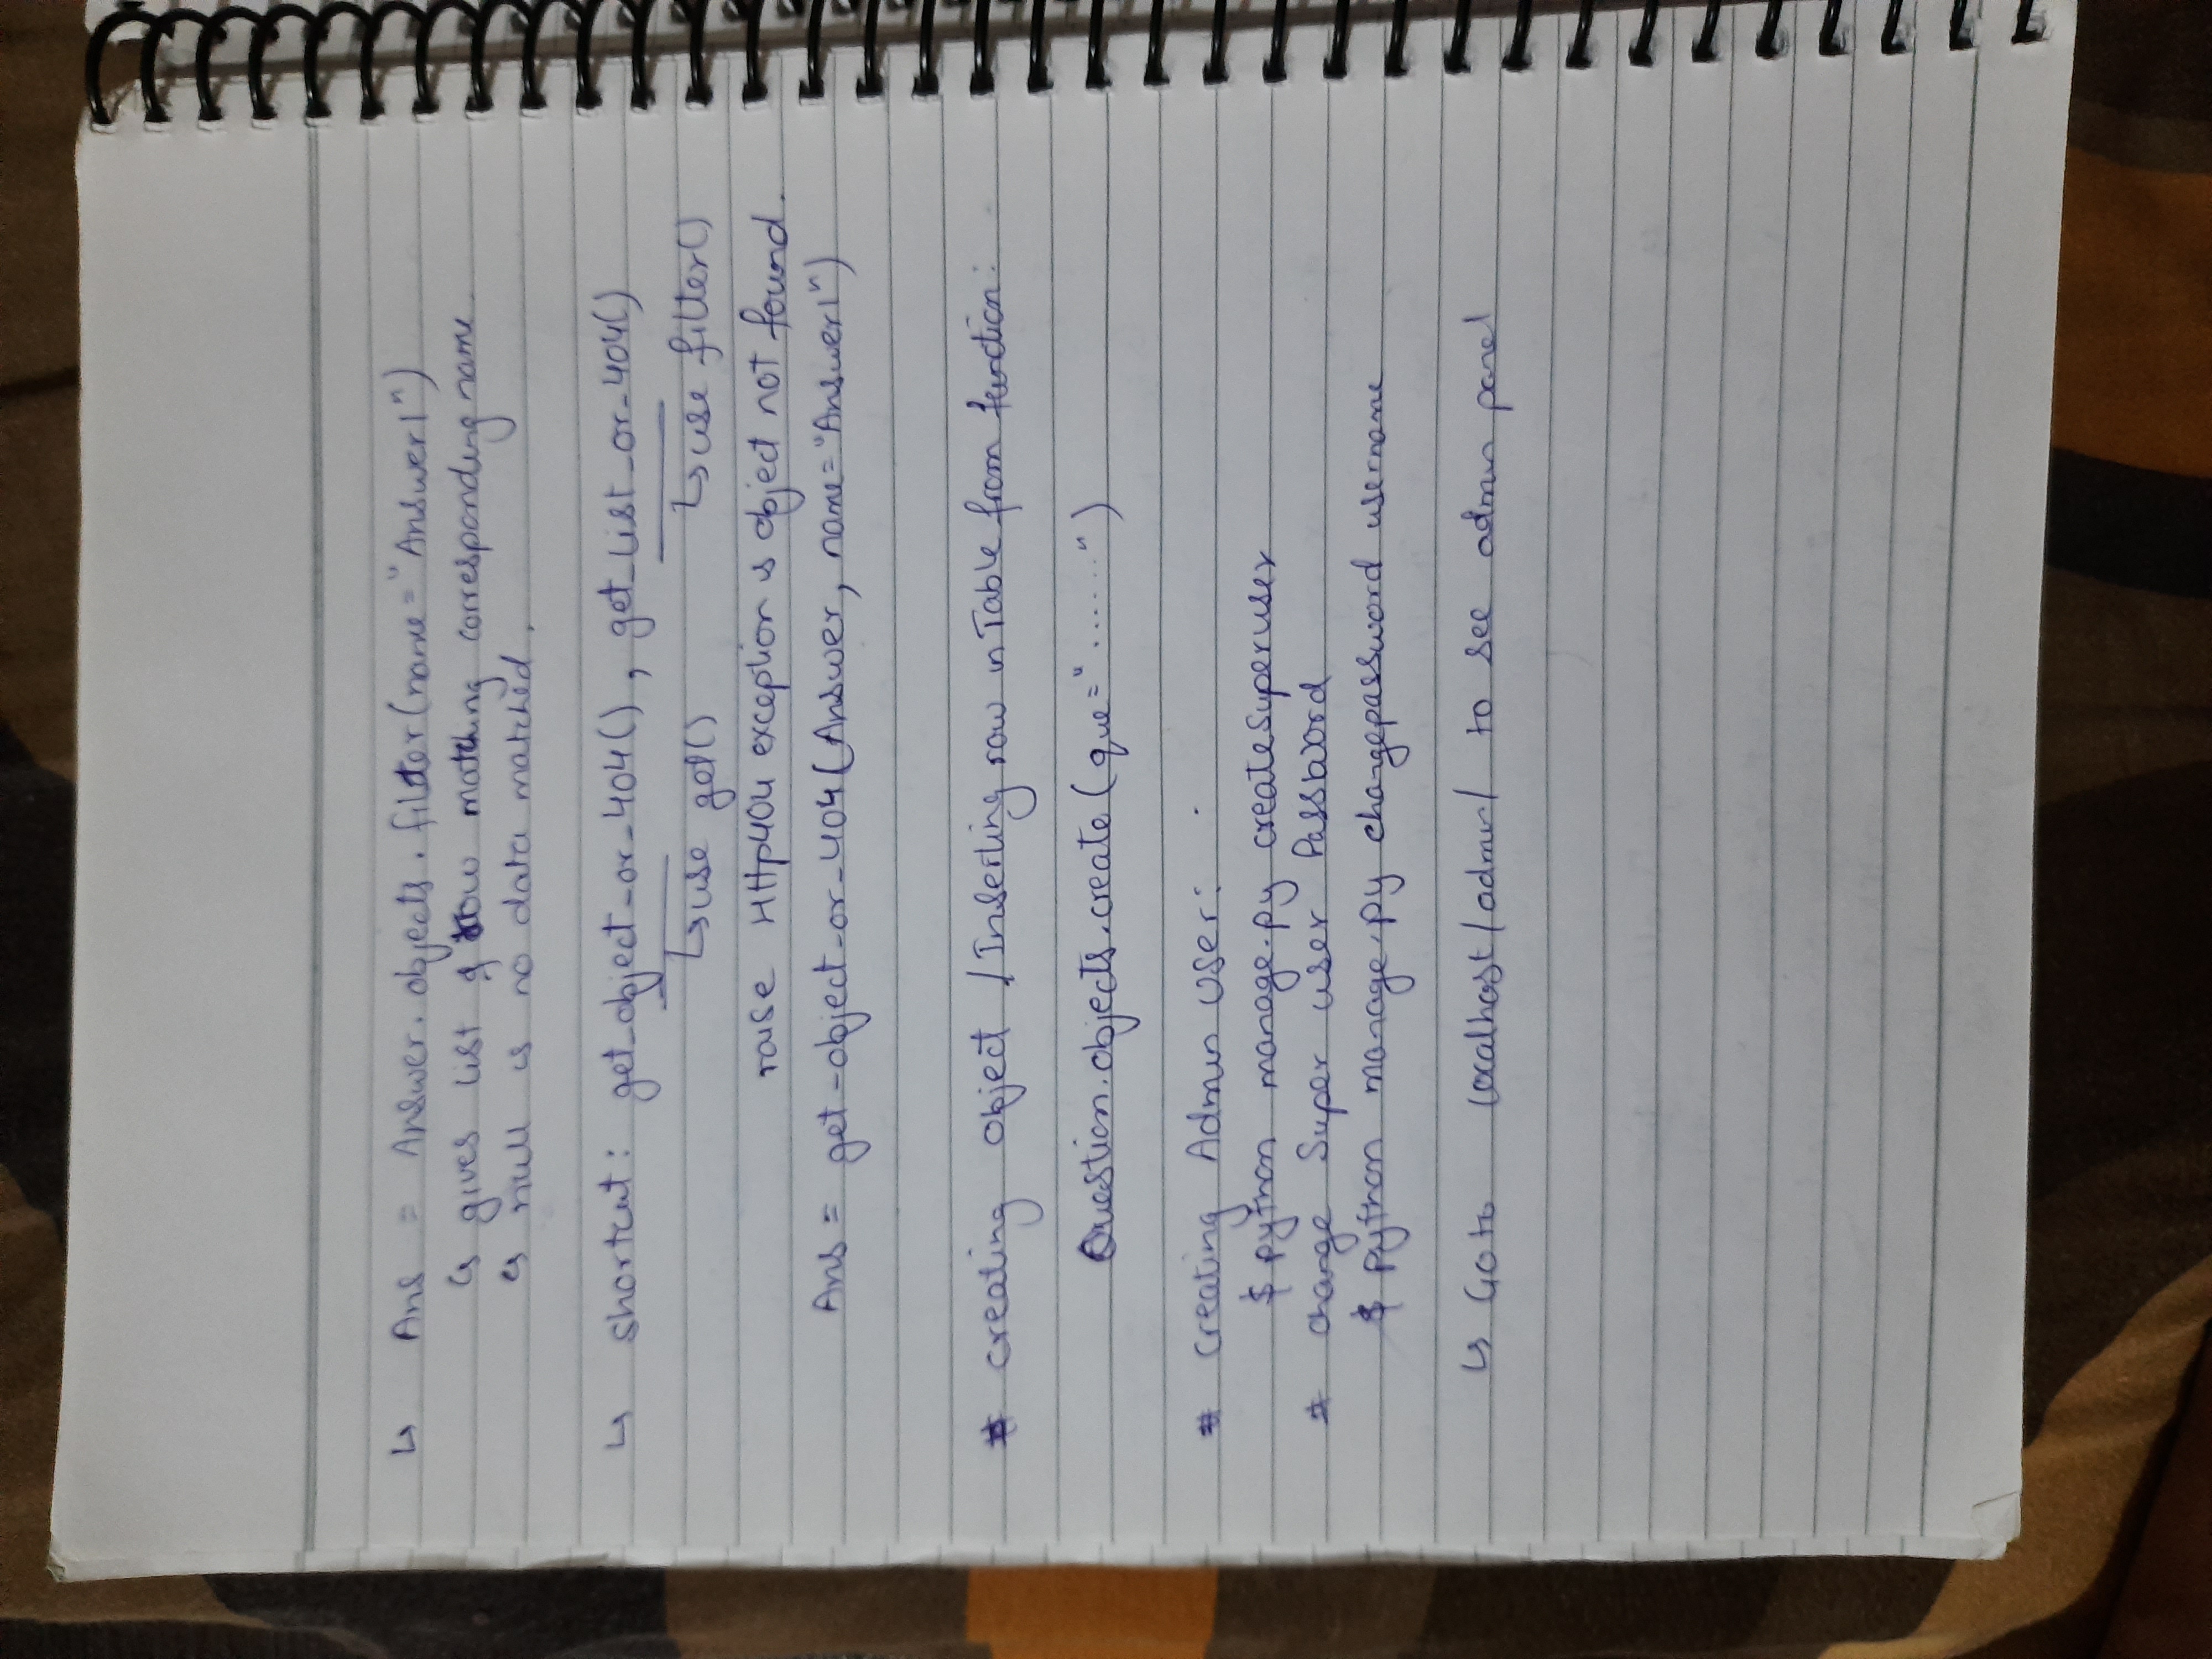 ↳ Ans = Answer.objects.filter(name="Answer1")
↳ gives list of row matching corresponding name
↳ null is no data matched.
↳ shortcut: get_object_or_404(), get_list_or_404()
↳ use get() ↳ use filter()
raise Http404 exception is object not found.
Ans = get_object_or_404(Answer, name="Answer1")
* creating object / Inserting row in Table from function:
Question.objects.create(que="......")
* creating Admin User:
$ python manage.py createsuperuser
* change Super user Password
$ python manage.py changepassword username
↳ Go to localhost/admin/ to see admin panel